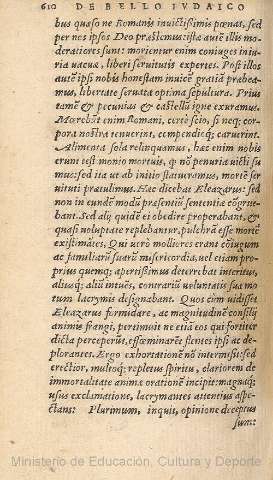 610 DE BELLO IVDAICO
bus quaso ne Romanis invictissimis pœnas, sed
per nos ipsos Deo præstemus: ista autē illis mo-
deratiores sunt: morientur enim coniuges iniu-
riæ vacuæ, liberi servitutis expertes. Post illos
autē ipsi nobis honestam invicē gratiā præbea-
mus, libertate servata optima sepultura. Prius
tamē & pecunias & castellū igne exuramus.
Mœrebūt enim Romani, certè scio, si neq; cor-
pora nostra tenuerint, cōpendiq; caruerint.
Alimenta sola relinquamus, hæc enim nobis
erunt testimonio mortuis, q̄ nō penuria victi su-
mus: sed ita ut ab initio statueramus, mortē ser-
vituti prætulimus. Hæc dicebat Eleazarus: sed
non in eundē modū præsentiū sententiæ cōgrue-
bant. Sed alij quidē ei obedire properabant, &
quasi voluptate replebantur, pulchrā esse mortē
existimātes. Qui verò molliores erant cōiugum
ac familiarū suarū misericordia, vel etiam pro-
prius quemq; apertissimus deterrebat interitus,
aliusq; aliū intuēs, contrariū voluntatis sua mo
tum lacrymis designabant. Quos cùm vidisset
Eleazarus formidare, ac magnitudinē consilij
animis frangi, pertimuit ne etiā eos qui fortiter
dicta perceperūt, effœminarēt flentes ipsi ac de-
plorantes. Ergo exhortationē nō intermisit: sed
erectior, multoq; repletus spiritu, clariorem de
immortalitate animæ orationē incipit: magnaq;
usus exclamatione, lacrymantes attentius aspe-
ctans: Plurimum, inquit, opinione deceptus
sum:
Ministerio de Educación, Cultura y Deporte